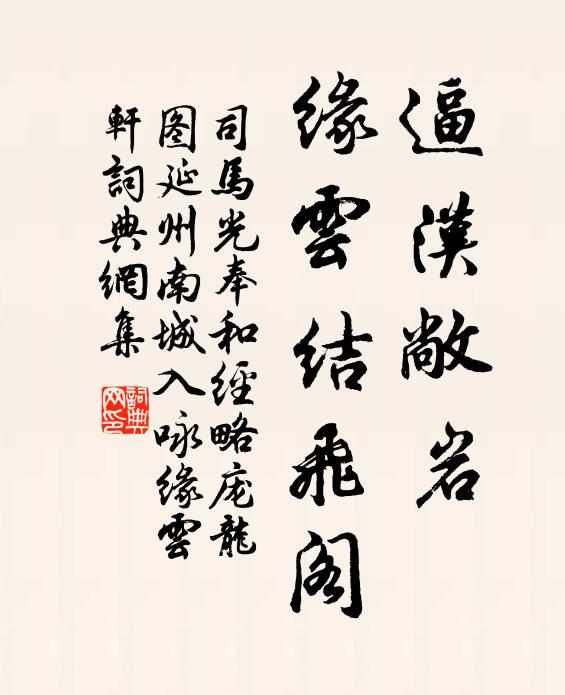 逼漢敞岩
緣雲結飛閣
司馬光奉和經略庞龍
图延州南城入咏緣雲
軒詞典網集
詞典
网印